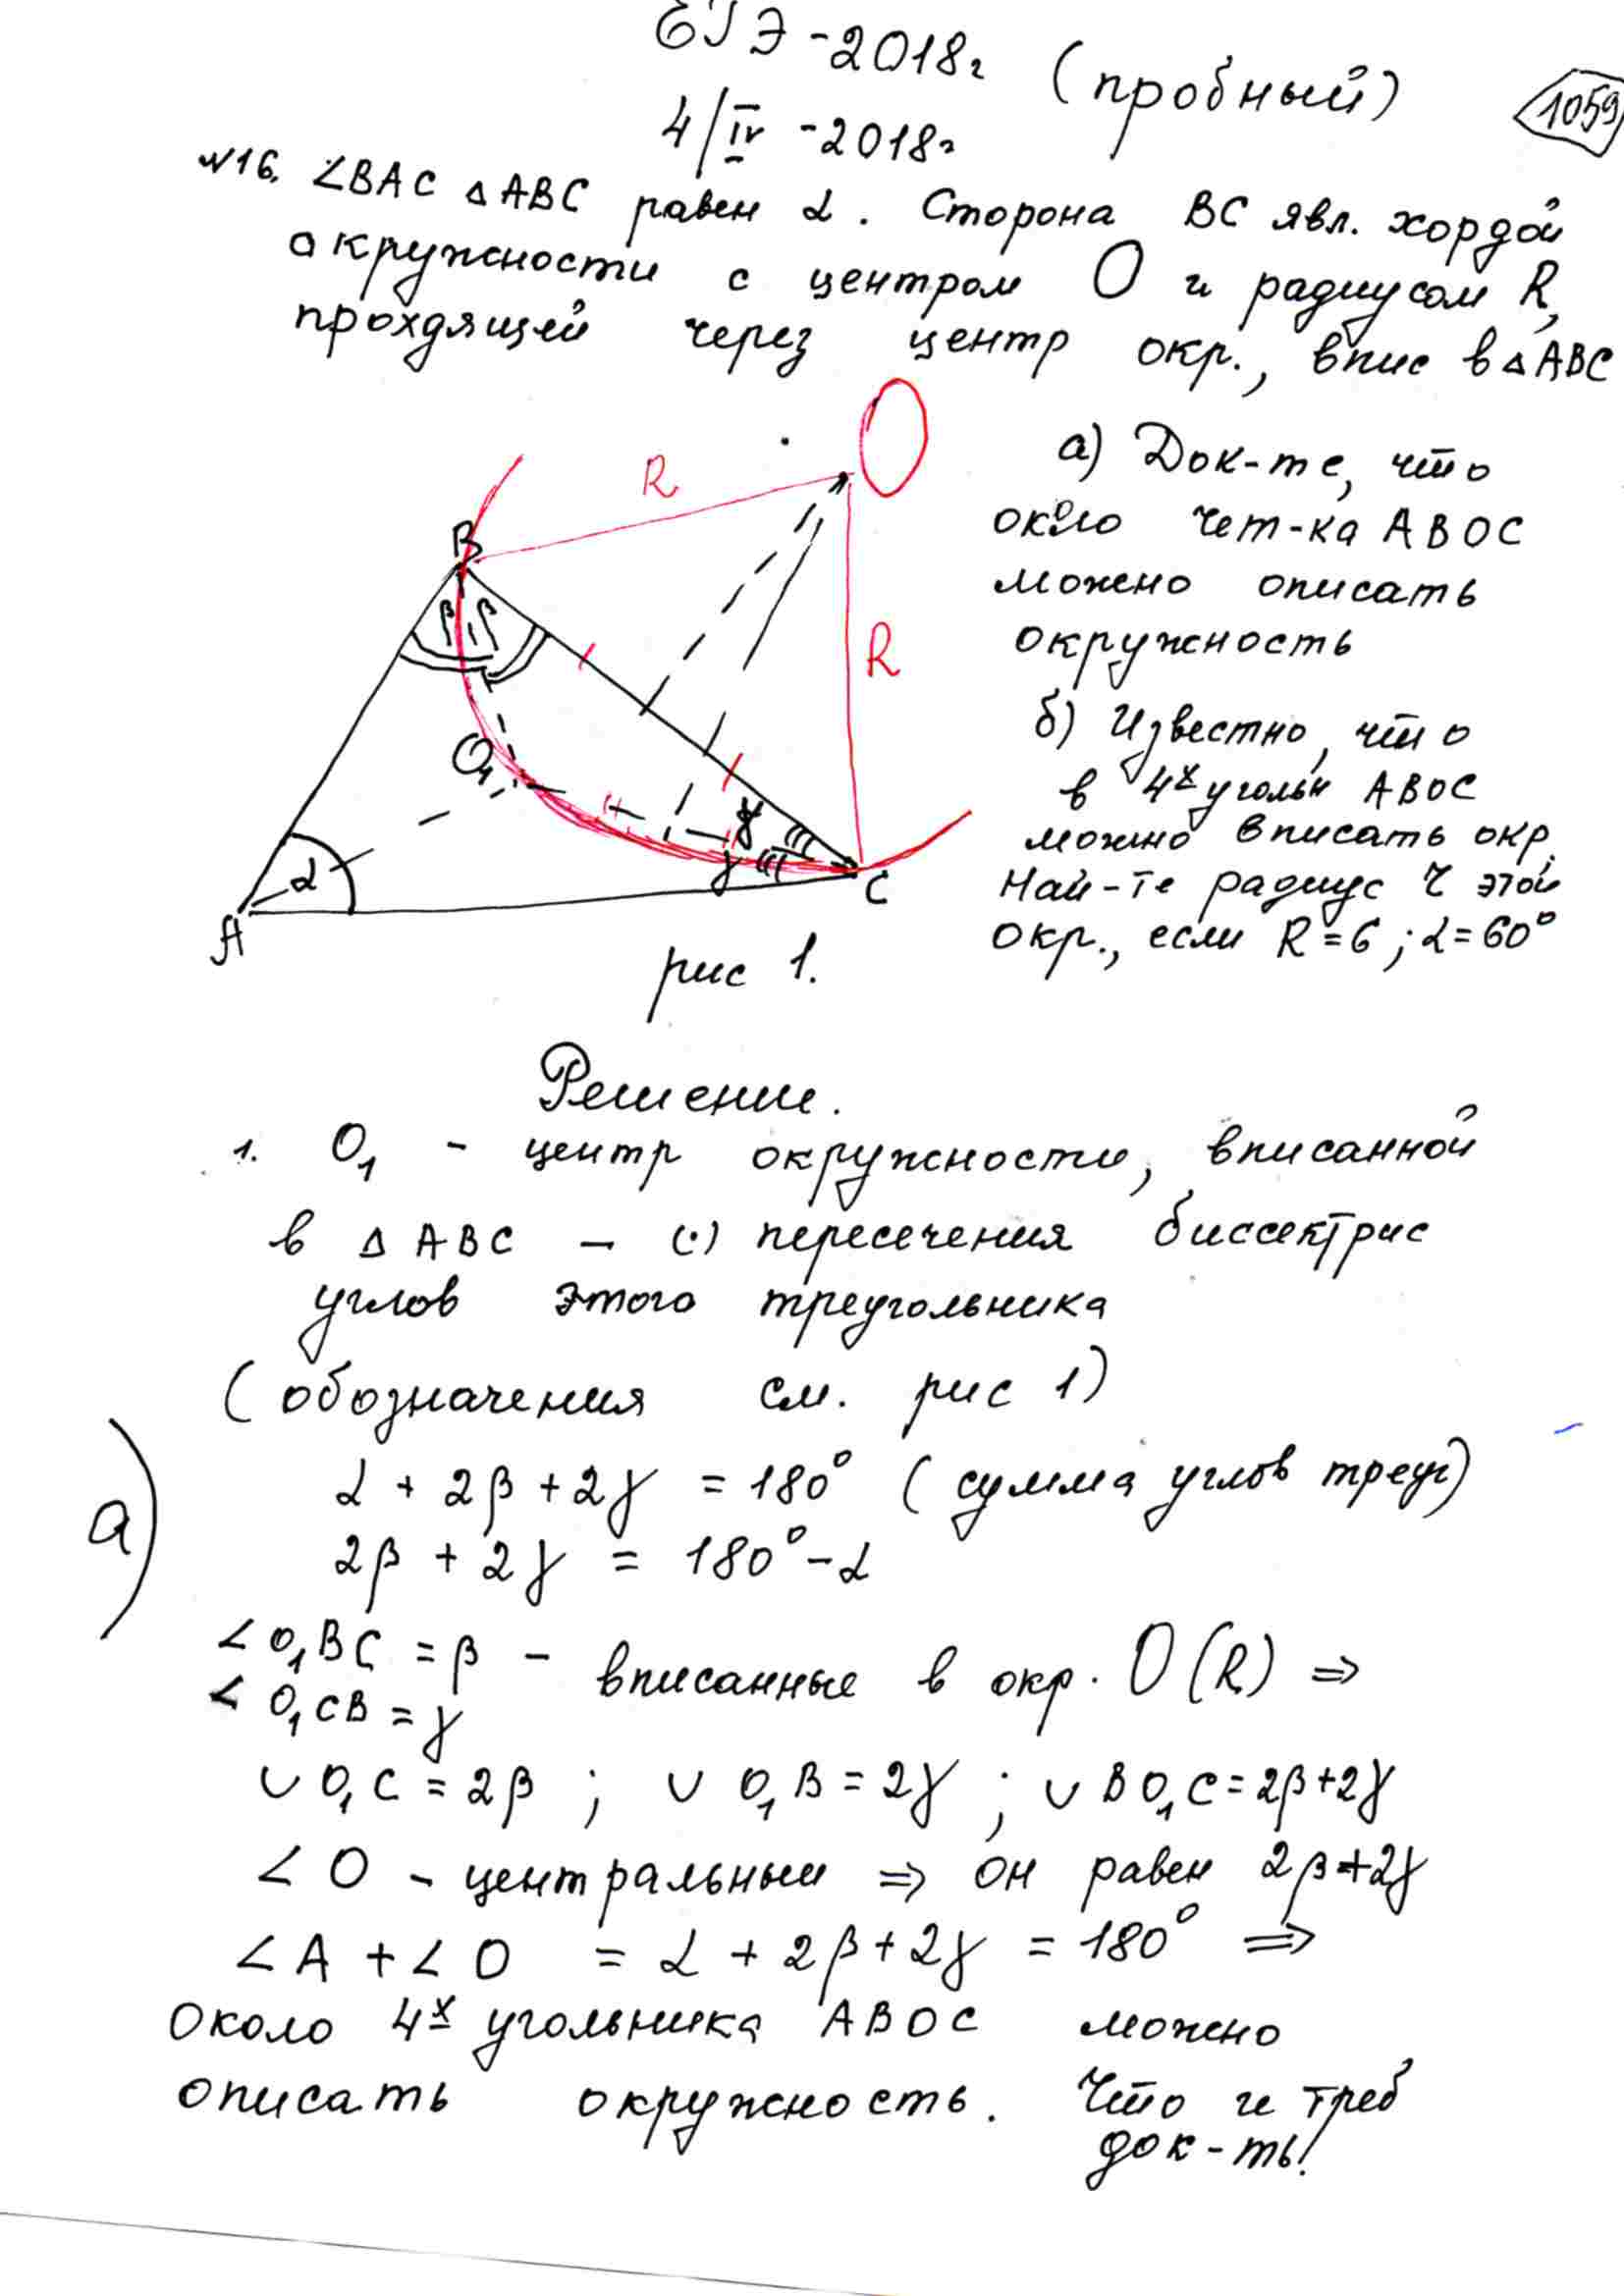 ЕГЭ-2018г (пробный)
1059
4/IV-2018г
№16. ∠BAC △ABC равен α. Сторона BC явл. хордой
окружности с центром O и радиусом R,
проходящей через центр окр., впис в △ABC
а) Док-те, что
около чет-ка ABOC
можно описать
окружность
б) Известно, что
в 4х угольн ABOC
можно вписать окр.
Най-те радиус r этой
окр., если R=6; α=60°
O
R
B
β β
R
O₁
γ
γ
α
A
C
рис 1.
Решение.
1. O₁ - центр окружности, вписанной
в △ABC - (·) пересечения биссектрис
углов этого треугольника
(обозначения см. рис 1)
а)
α + 2β + 2γ = 180° (сумма углов треуг)
2β + 2γ = 180° - α
∠O₁BC = β - вписанные в окр. O(R) ⇒
∠O₁CB = γ
∪O₁C = 2β; ∪O₁B = 2γ; ∪BO₁C = 2β+2γ
∠O - центральный ⇒ он равен 2β+2γ
∠A + ∠O = α + 2β + 2γ = 180° ⇒
Около 4х угольника ABOC можно
описать окружность. Что и треб
док-ть!